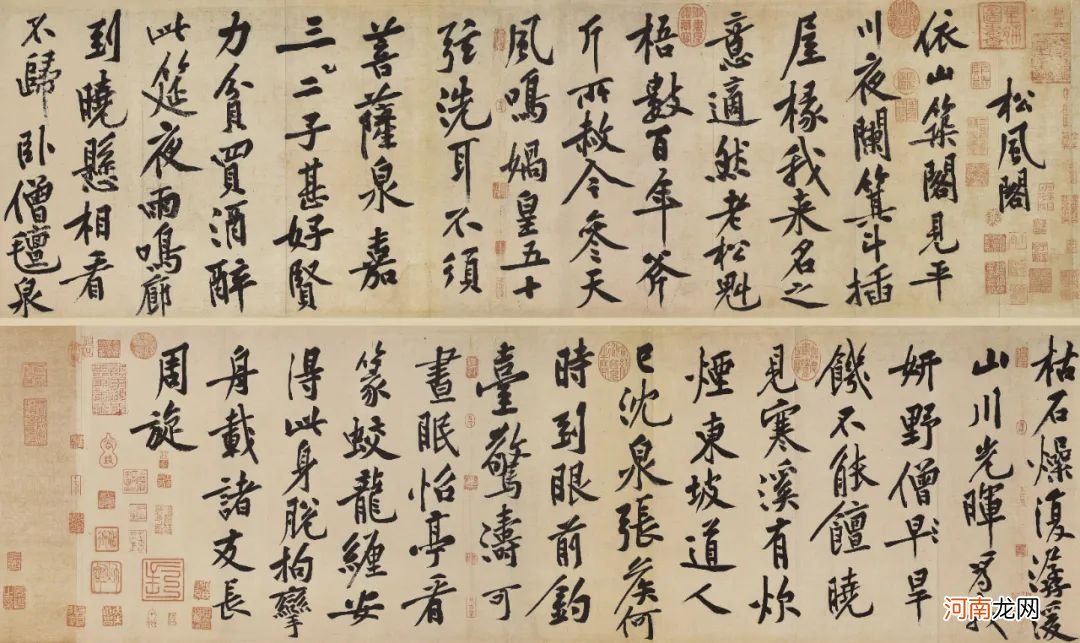 松風閣
依山築閣見平
川夜闌箕斗插
屋椽我来名之
意適然老松魁
梧數百年斧
斤所赦今參天
風鳴媧皇五十
弦洗耳不須
菩薩泉嘉
三二子甚好賢
力貧買酒醉
此筵夜雨鳴廊
到曉懸相看
不歸卧僧氊泉
枯石燥復潺湲
山川光暉為我
妍野僧早旱
饑不能饘曉
見寒溪有炊
煙東坡道人
已沈泉張矦何
時到眼前釣
臺驚濤可
晝眠怡亭看
篆蛟龍纏安
得此身脱拘攣
舟載諸友長
周旋
河南龙网